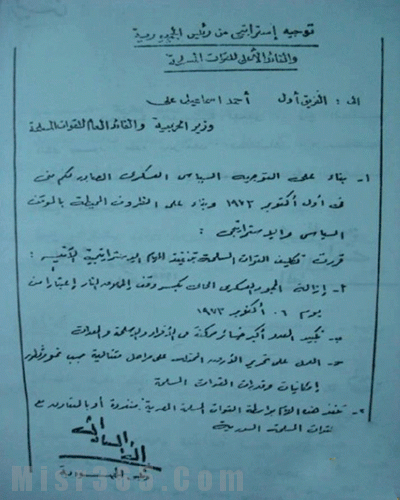 توجيه إستراتيجى من رئيس الجمهورية
والقائد الأعلى للقوات المسلحة
الى : الفريق أول أحمد اسماعيل على
وزير الحربية والقائد العام للقوات المسلحة
١- بناء على التوجيه السياسى العسكرى الصادر لكم منى
فى أول أكتوبر ١٩٧٣ وبناء على الظروف المحيطة بالموقف
السياسى والاستراتيجى :
قررت تكليف القوات المسلحة بتنفيذ المهام الاستراتيجية الآتية :
أ- إزالة الجمود العسكرى الحالى بكسر وقف إطلاق النار إعتباراً من
يوم ٠٦ أكتوبر ١٩٧٣
ب- تكبيد العدو أكبر خسائر ممكنة فى الأفراد والأسلحة والمعدات
ج- العمل على تحرير الأرض المحتلة على مراحل متتالية حسب نمو وتطور
إمكانيات وقدرات القوات المسلحة
٢- تنفذ هذه المهام بواسطة القوات المسلحة المصرية منفردة أو بالتعاون مع
القوات المسلحة السورية
رئيس الجمهورية
Misr360.Com